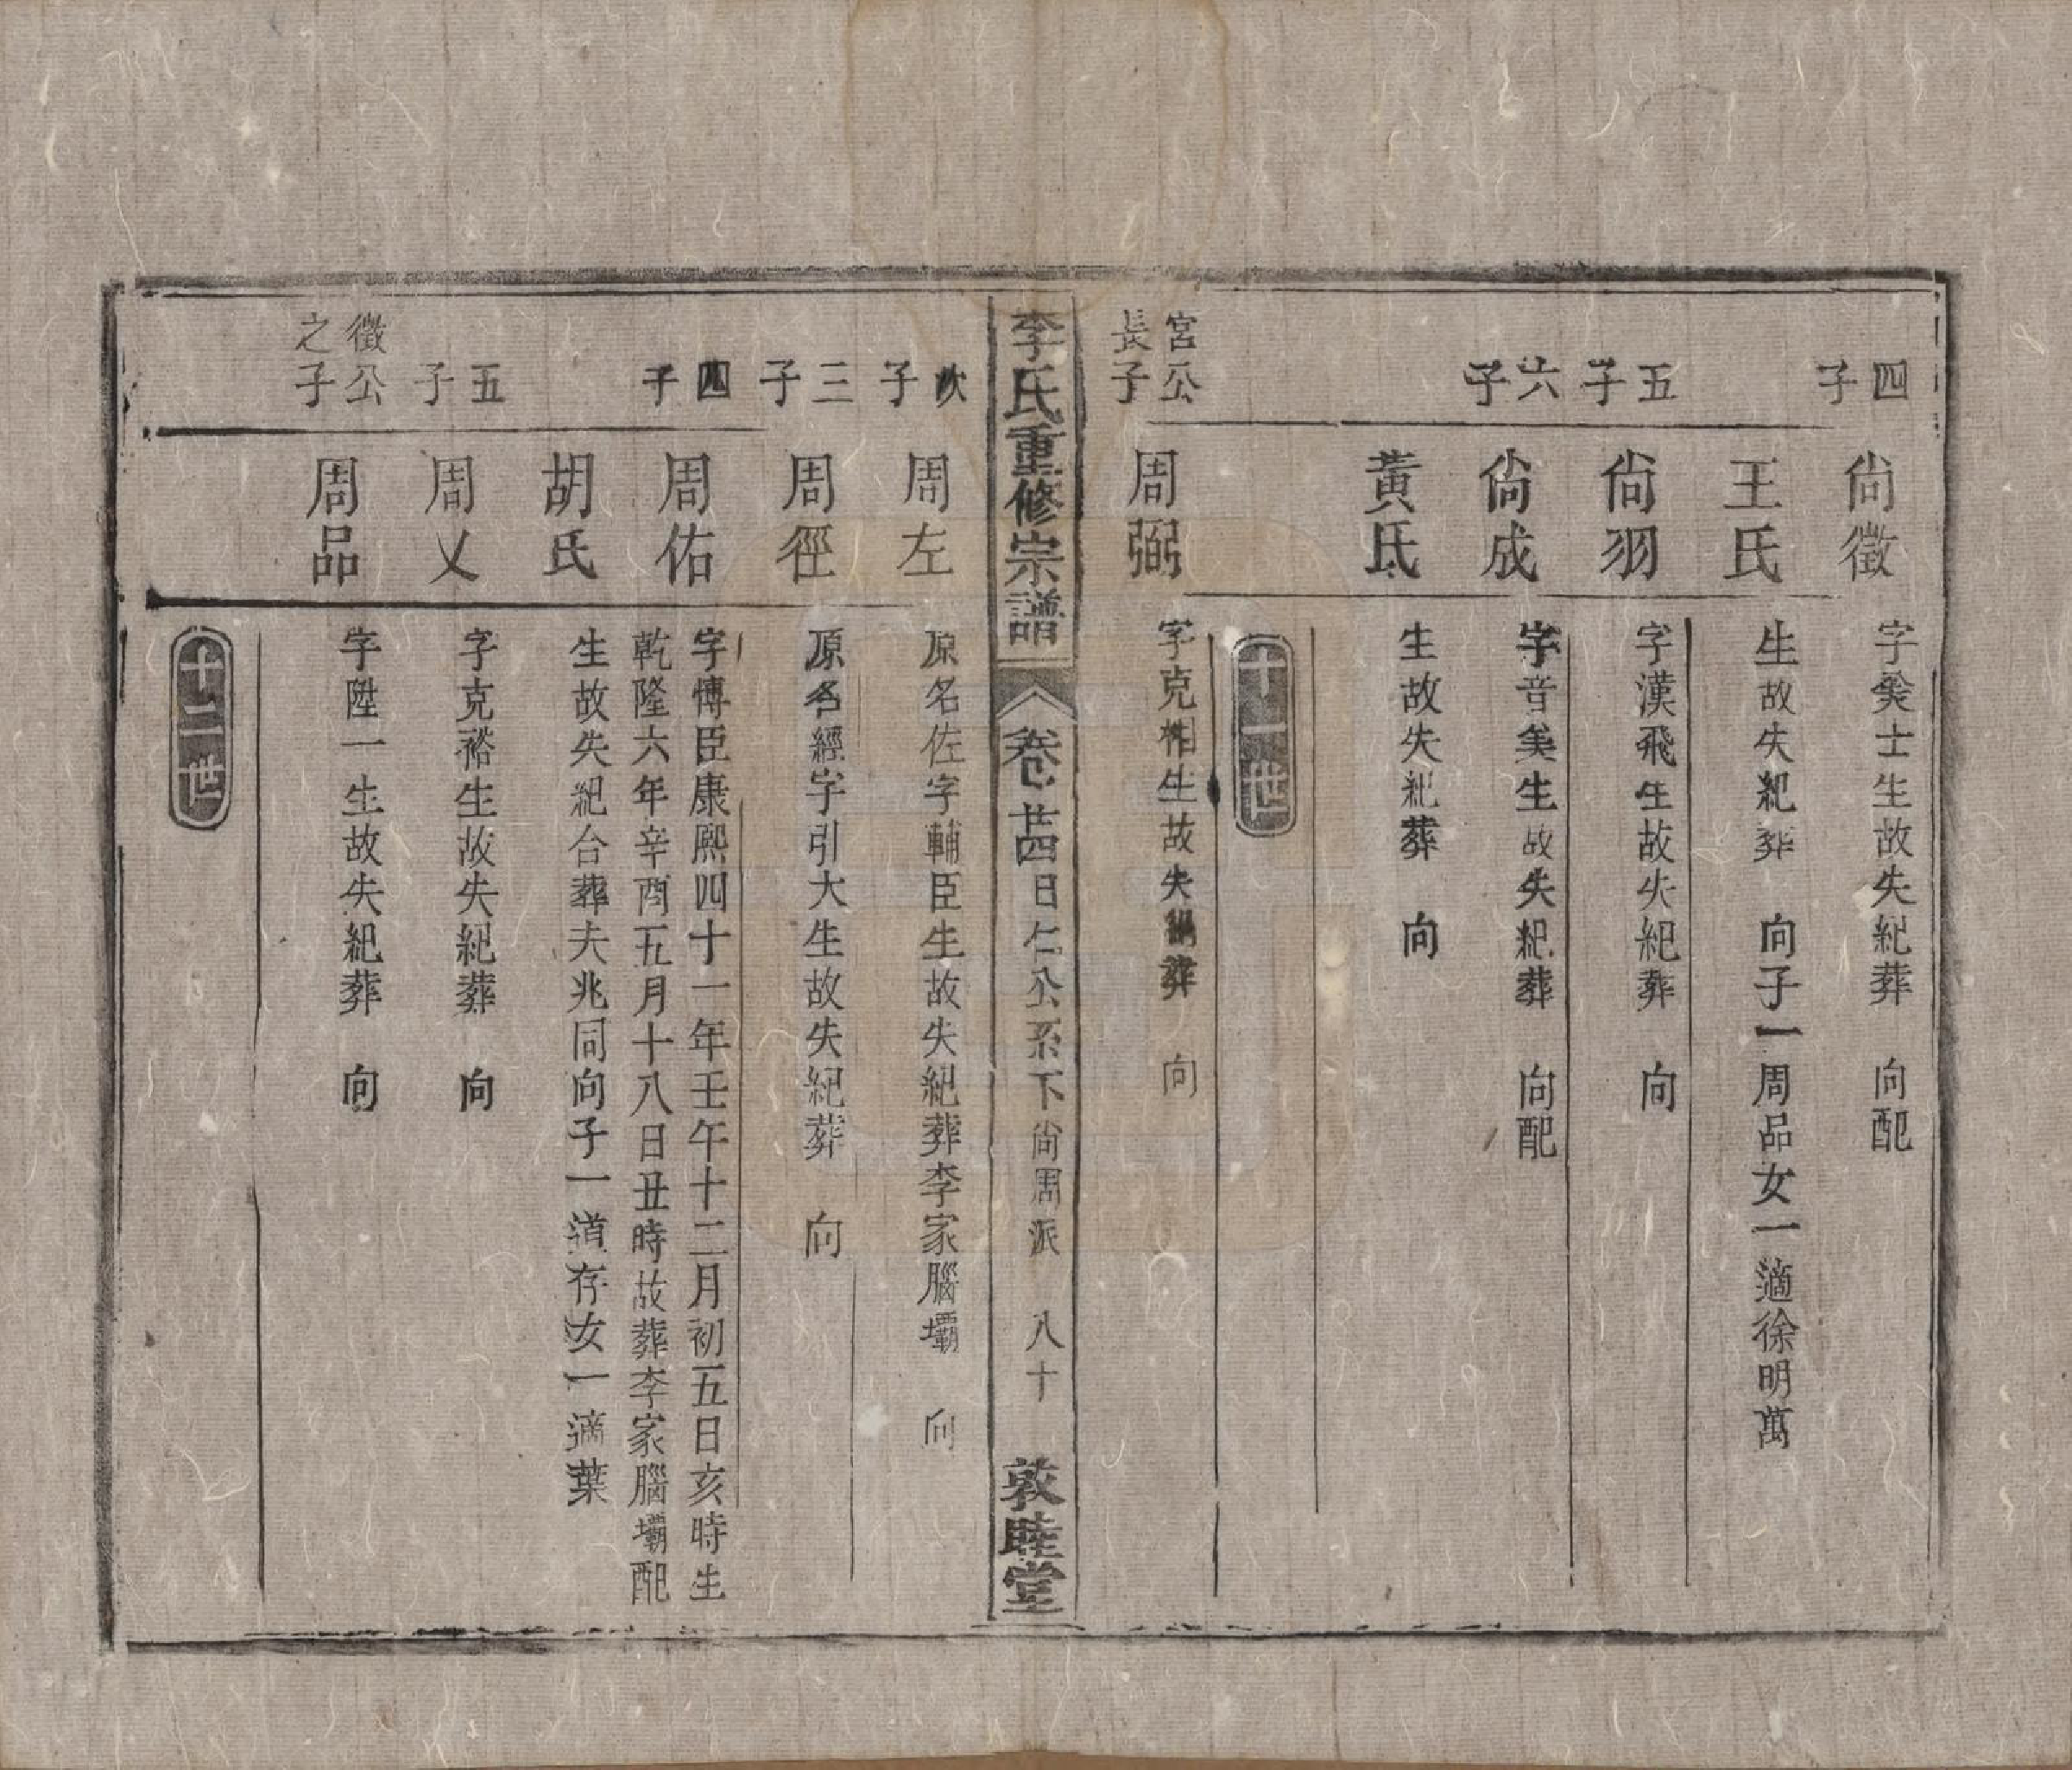 四子
尙徵
字美士生故失紀葬　向配
王氏
生故失紀葬　向子一周品女一適徐明萬
五子
尙羽
字漢飛生故失紀葬　向
六子
尙成
字音美生故失紀葬　向配
黃氏
生故失紀葬　向
十一世
宮公長子
周弼
字克相生故失紀葬　向
李氏重修宗譜
卷廿四日仁公系下尙周派　八十
敦睦堂
次子
周左
原名佐字輔臣生故失紀葬李家腦壩　向
三子
周徑
原名經字引大生故失紀葬　向
四子
周佑
字博臣康熙四十一年壬午十二月初五日亥時生
乾隆六年辛酉五月十八日丑時故葬李家腦壩配
胡氏
生故失紀合葬夫兆同向子一道存女一適葉
五子
周乂
字克裕生故失紀葬　向
徵公之子
周品
字陞一生故失紀葬　向
十二世